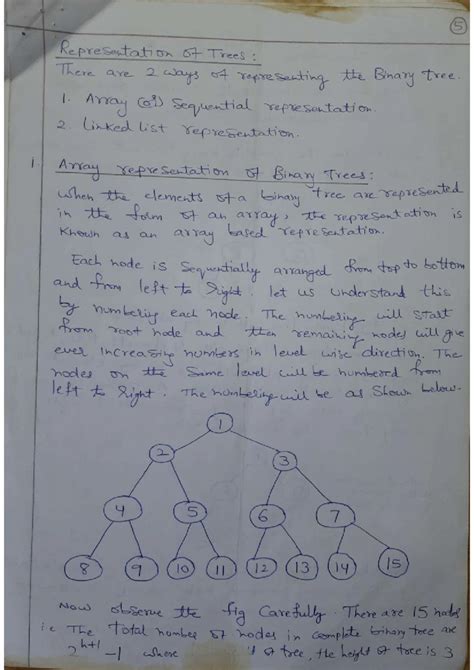 5
Representation of Trees :
There are 2 ways of representing the Binary tree.
1. Array (or) Sequential representation.
2. Linked list representation.
1. Array representation of Binary Trees :
When the elements of a binary tree are represented
in the form of an array, the representation is
known as an array based representation.
Each node is sequentially arranged from top to bottom
and from left to right. let us understand this
by numbering each node. The numbering will start
from root node and then remaining nodes will give
ever increasing numbers in level wise direction. The
nodes on the same level will be numbered from
left to right. The numbering will be as shown below.
1
2 3
4 5 6 7
8 9 10 11 12 13 14 15
Now observe the fig carefully. There are 15 nodes
i.e The total number of nodes in complete binary tree are
2^h+1 - 1 where of tree, the height of tree is 3